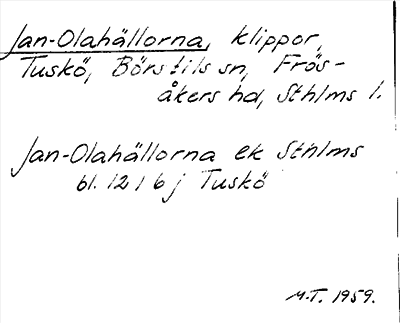 Jan-Olahällorna, klippor,
Tuskö, Börstils sn, Frös-
åkers hd, Sthlms l.
Jan-Olahällorna ek Sthlms
bl. 12 I 6 j Tuskö
M.T. 1959.